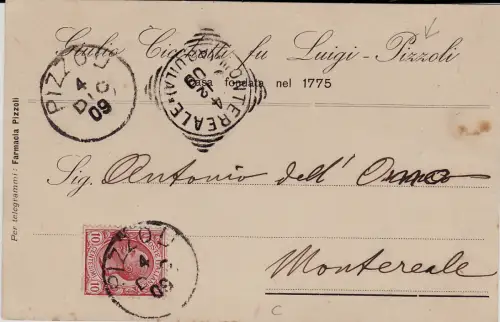 Giulio Cicchetti fu Luigi - Pizzoli
Casa fondata nel 1775
PIZZOLI
4
DIC
09
MONTEREALE
(AQUILA)
4 12 09
Per telegrammi: Farmacia Pizzoli
Sig. Antonio dell'
10 10
PIZZOLI
4
Montereale
C